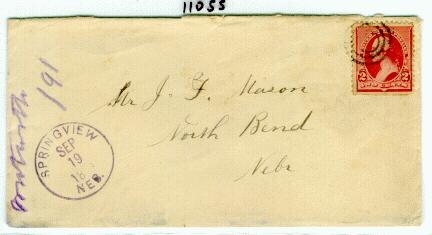 11055
2 2
Mr J. F. Mason
North Bend
Nebr
SPRINGVIEW
SEP
19
18
NEB.
191